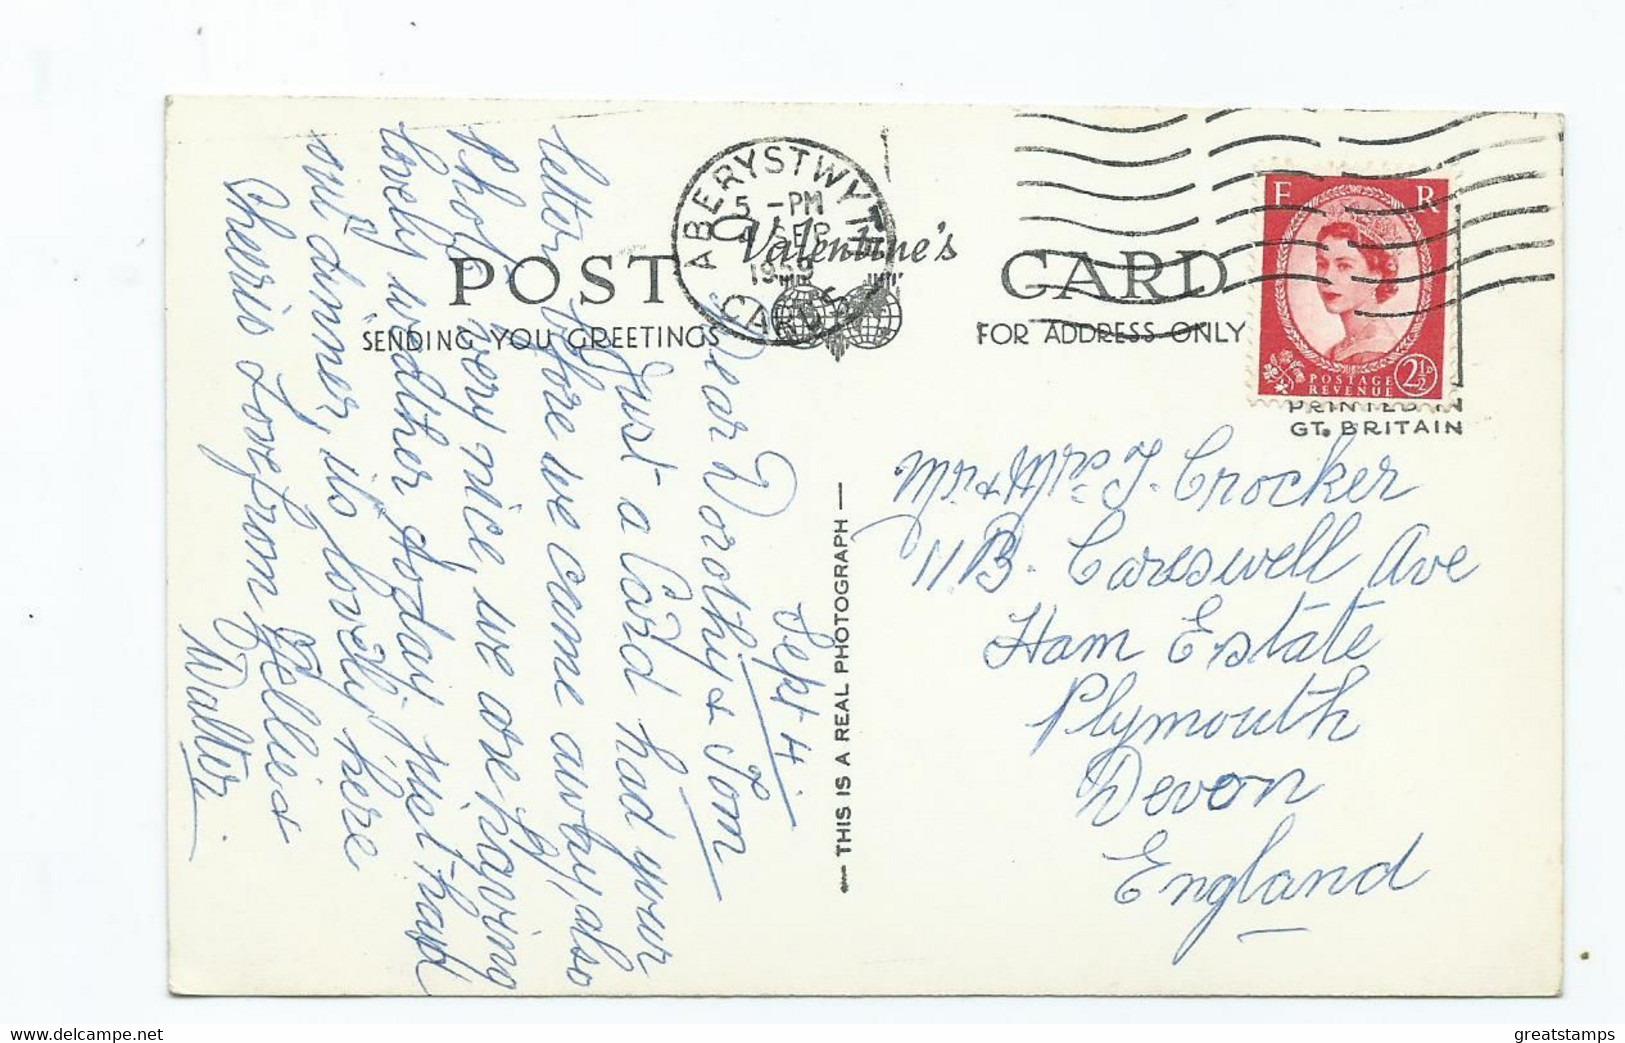 ABERYSTWYTH
5 - PM
4 SEP
1959
CARDS
Valentine's
POST CARD
SENDING YOU GREETINGS
FOR ADDRESS ONLY
E R
POSTAGE
REVENUE
2½D
PRINTED IN
GT. BRITAIN
THIS IS A REAL PHOTOGRAPH
Sept 4.
Dear Dorothy & Tom
Just a Card had your
letter before we came away, also
Photo very nice, we are having
lovely weather today just had
our dinner, its lovely here
Cheerio Love from Nellie &
Walter.
Mr & Mrs T. Crocker
11B. Careswell Ave
Ham Estate
Plymouth
Devon
England
www.delcampe.net
greatstamps